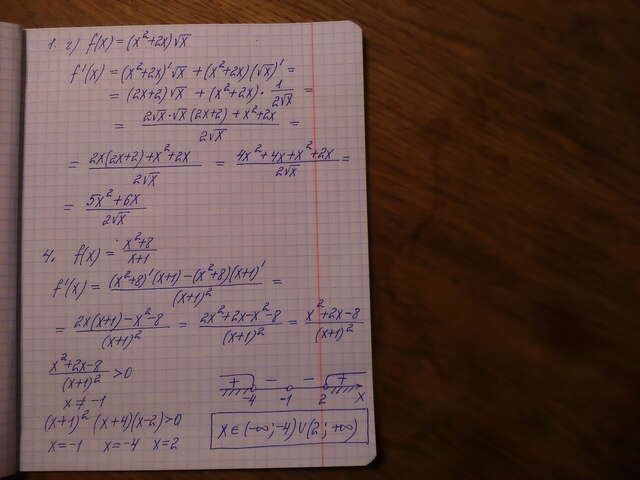 1. г) f(x) = (x²+2x)√x
f'(x) = (x²+2x)'√x + (x²+2x)(√x)' =
= (2x+2)√x + (x²+2x) · 1/(2√x) =
= (2√x·√x(2x+2) + x²+2x)/(2√x) =
= (2x(2x+2)+x²+2x)/(2√x) = (4x²+4x+x²+2x)/(2√x) =
= (5x²+6x)/(2√x)
4. f(x) = (x²+8)/(x+1)
f'(x) = ((x²+8)'(x+1) − (x²+8)(x+1)')/(x+1)² =
= (2x(x+1)−x²−8)/(x+1)² = (2x²+2x−x²−8)/(x+1)² = (x²+2x−8)/(x+1)²
(x²+2x−8)/(x+1)² > 0
x ≠ −1
(x+1)² (x+4)(x−2)>0
x=−1 x=−4 x=2
+ − − +
−4 −1 2 x
x∈(−∞;−4)∪(2;+∞)